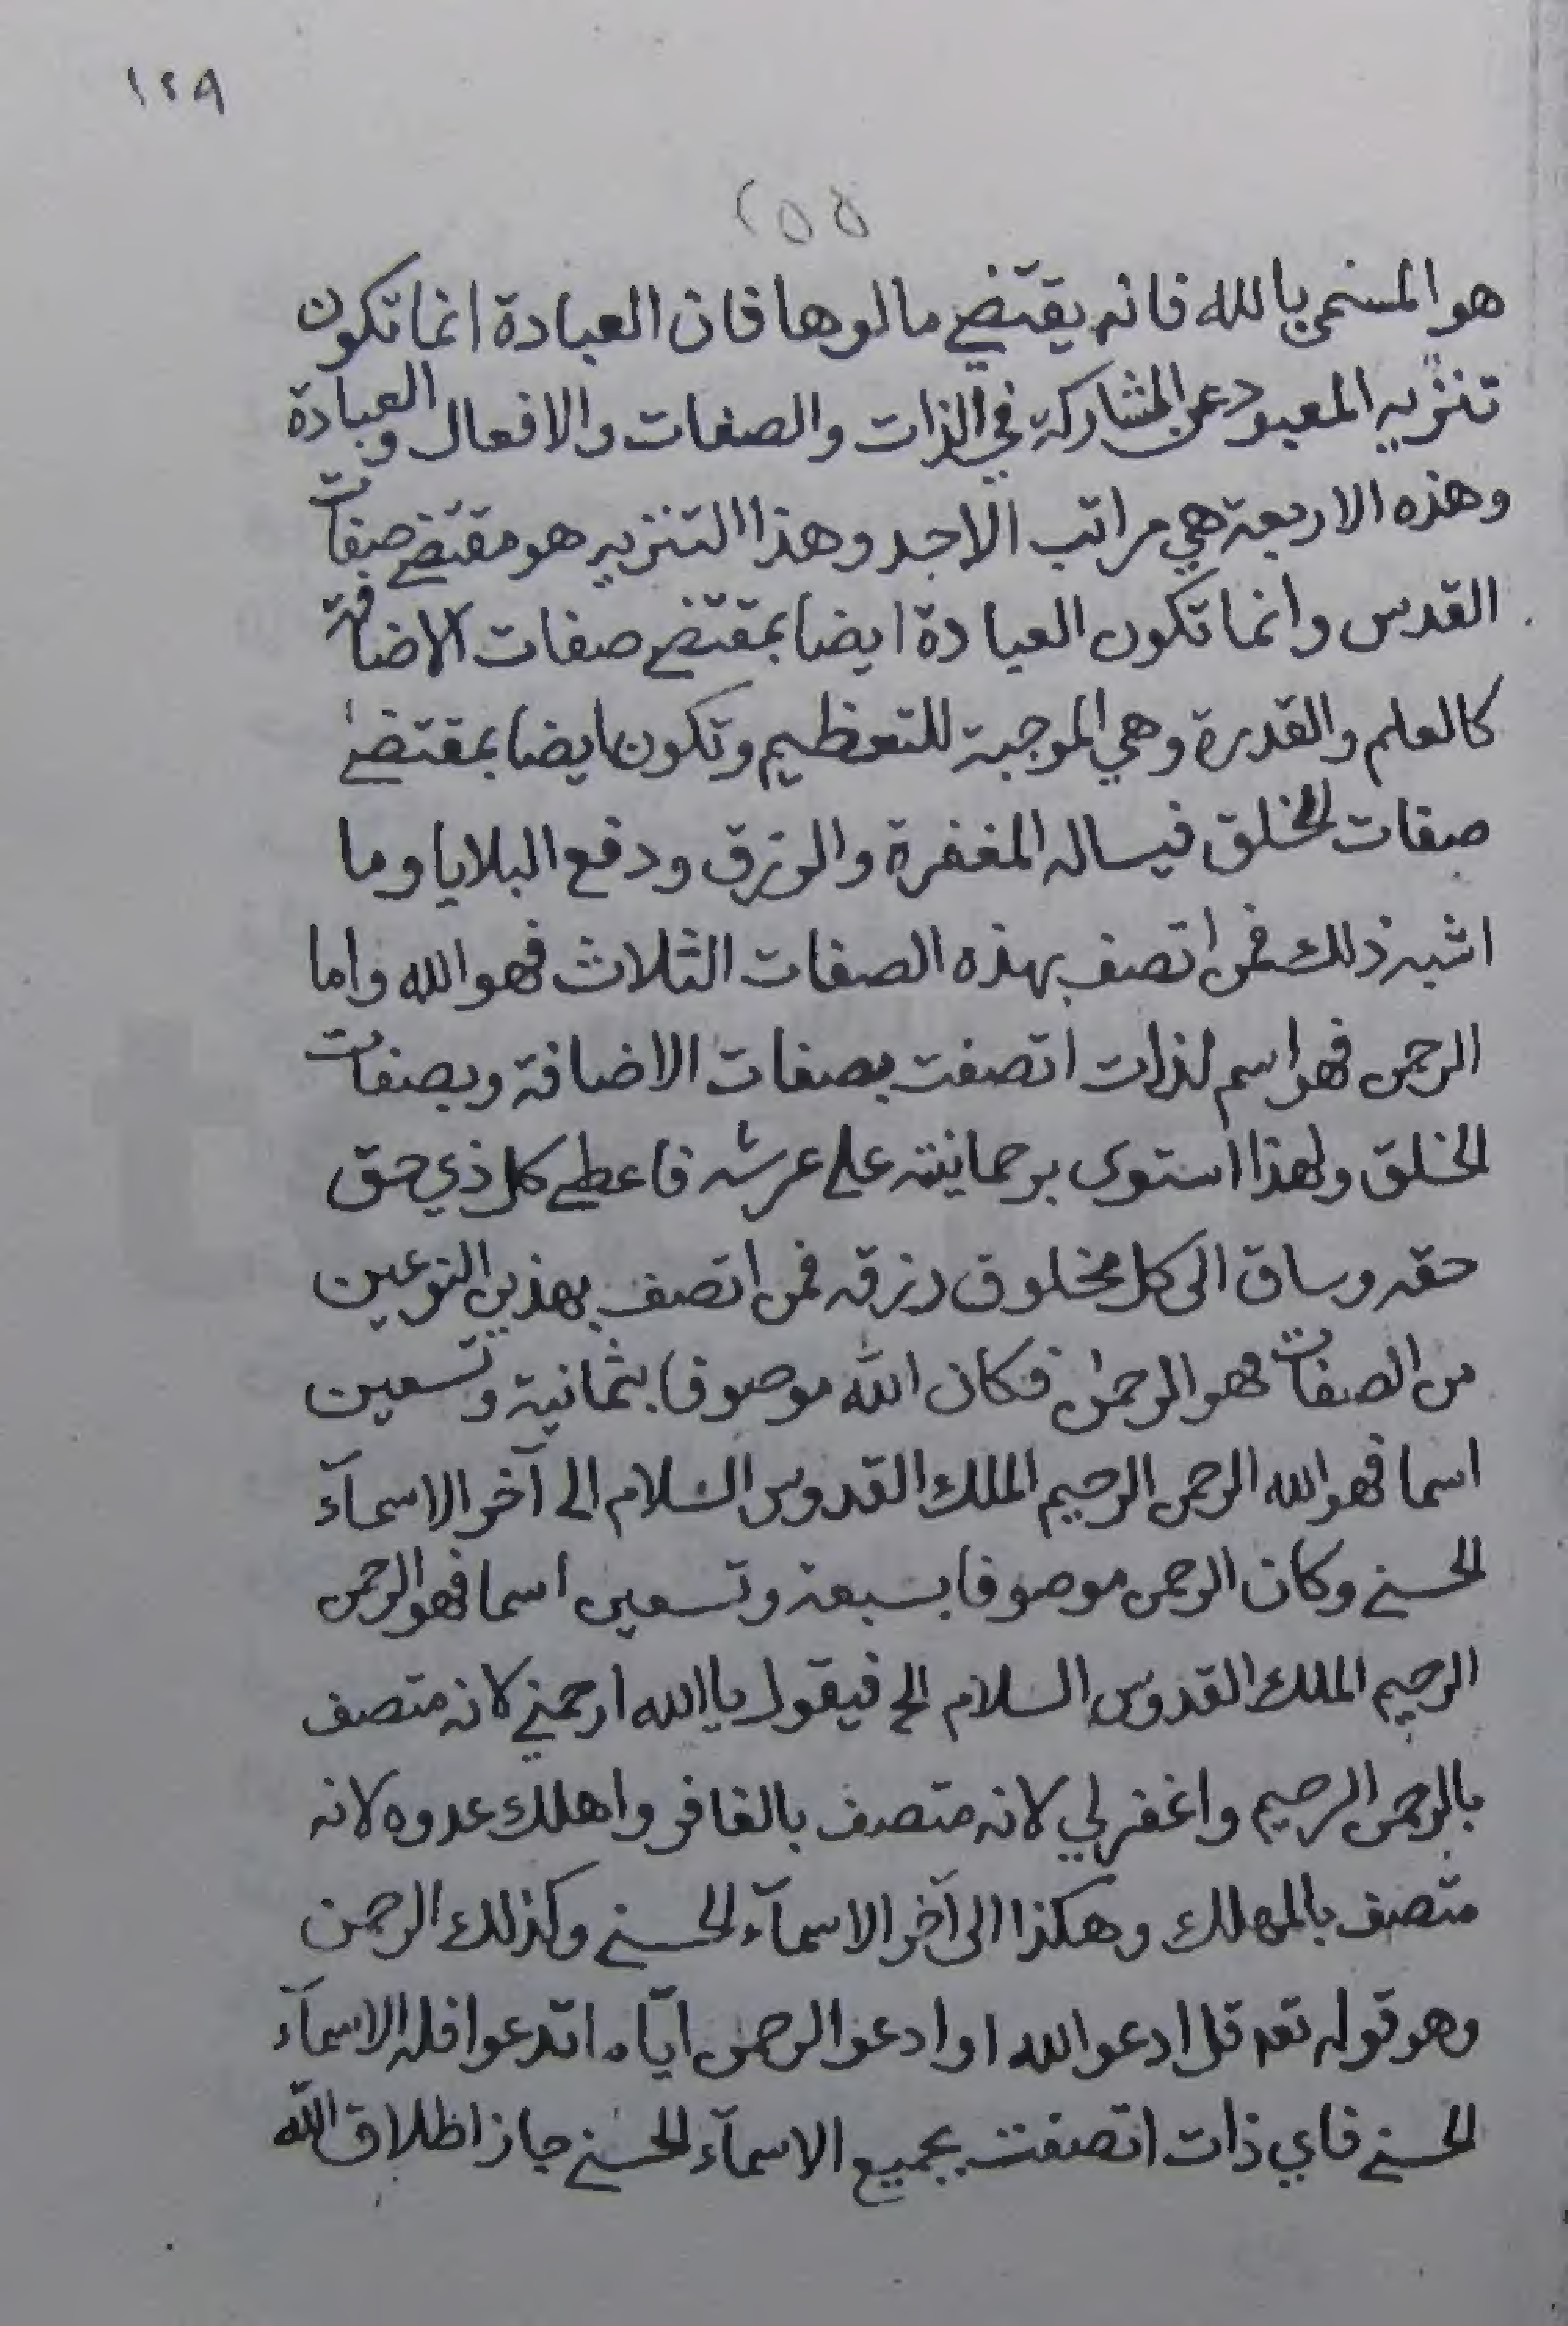 ١٢٩
٢٥٥
هو المسمى بالله فانه يقتضي مالوها فان العبادة انما تكون
تنزيه المعبود عن المشاركة في الذات والصفات والافعال والعبادة
وهذه الاربعة هي مراتب الاحد وهذا التنزيه هو مقتضى صفات
القدس وانما تكون العبادة ايضا بمقتضى صفات الاضافة
كالعلم والقدرة وهي الموجبة للتعظيم وتكون ايضا بمقتضى
صفات الخلق فيساله المغفرة والرزق ودفع البلايا وما
اشبه ذلك فمن اتصف بهذه الصفات الثلاث فهو الله واما
الرحمن فهو اسم لذات اتصفت بصفات الاضافة وبصفات
الخلق ولهذا استوى برحمانيته على عرشه فاعطى كل ذي حق
حقه وساق الى كل مخلوق رزقه فمن اتصف بهذين النوعين
من الصفات فهو الرحمن فكان الله موصوفا بثمانية وتسعين
اسما فهو الله الرحمن الرحيم الملك القدوس السلام الى آخر الاسمآء
الحسنى وكان الرحمن موصوفا بسبعة وتسعين اسما فهو الرحمن
الرحيم الملك القدوس السلام الخ فيقول يا الله ارحمني لانه متصف
بالرحمن الرحيم واغفر لي لانه متصف بالغافر واهلك عدوه لانه
متصف بالمهلك وهكذا الى آخر الاسمآء الحسنى وكذلك الرحمن
وهو قوله تعه قل ادعوا الله او ادعوا الرحمن ايّا ما تدعوا فله الاسمآء
الحسنى فاي ذات اتصفت بجميع الاسمآء الحسنى جاز اطلاق الله